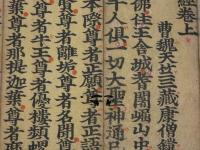 經卷上
曹魏天竺三藏康僧鎧
佛住王舍城耆闍崛山中
千人俱一切大聖神通已
本際尊者正願尊者正語
賢尊者離垢尊者名聞尊
尊者牛王尊者優樓頻螺
葉尊者那提迦葉尊者